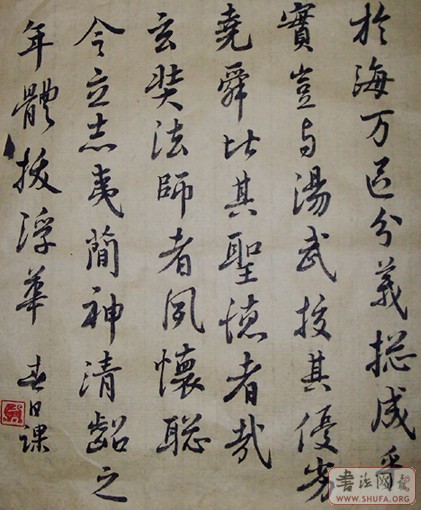 於海万区分義揔成乎
實豈与湯武挍其優劣
堯舜比其聖德者哉
玄奘法師者夙懷聡
令立志夷簡神清齠之
年體拔浮華 春日課
WWW.SHUFA.ORG